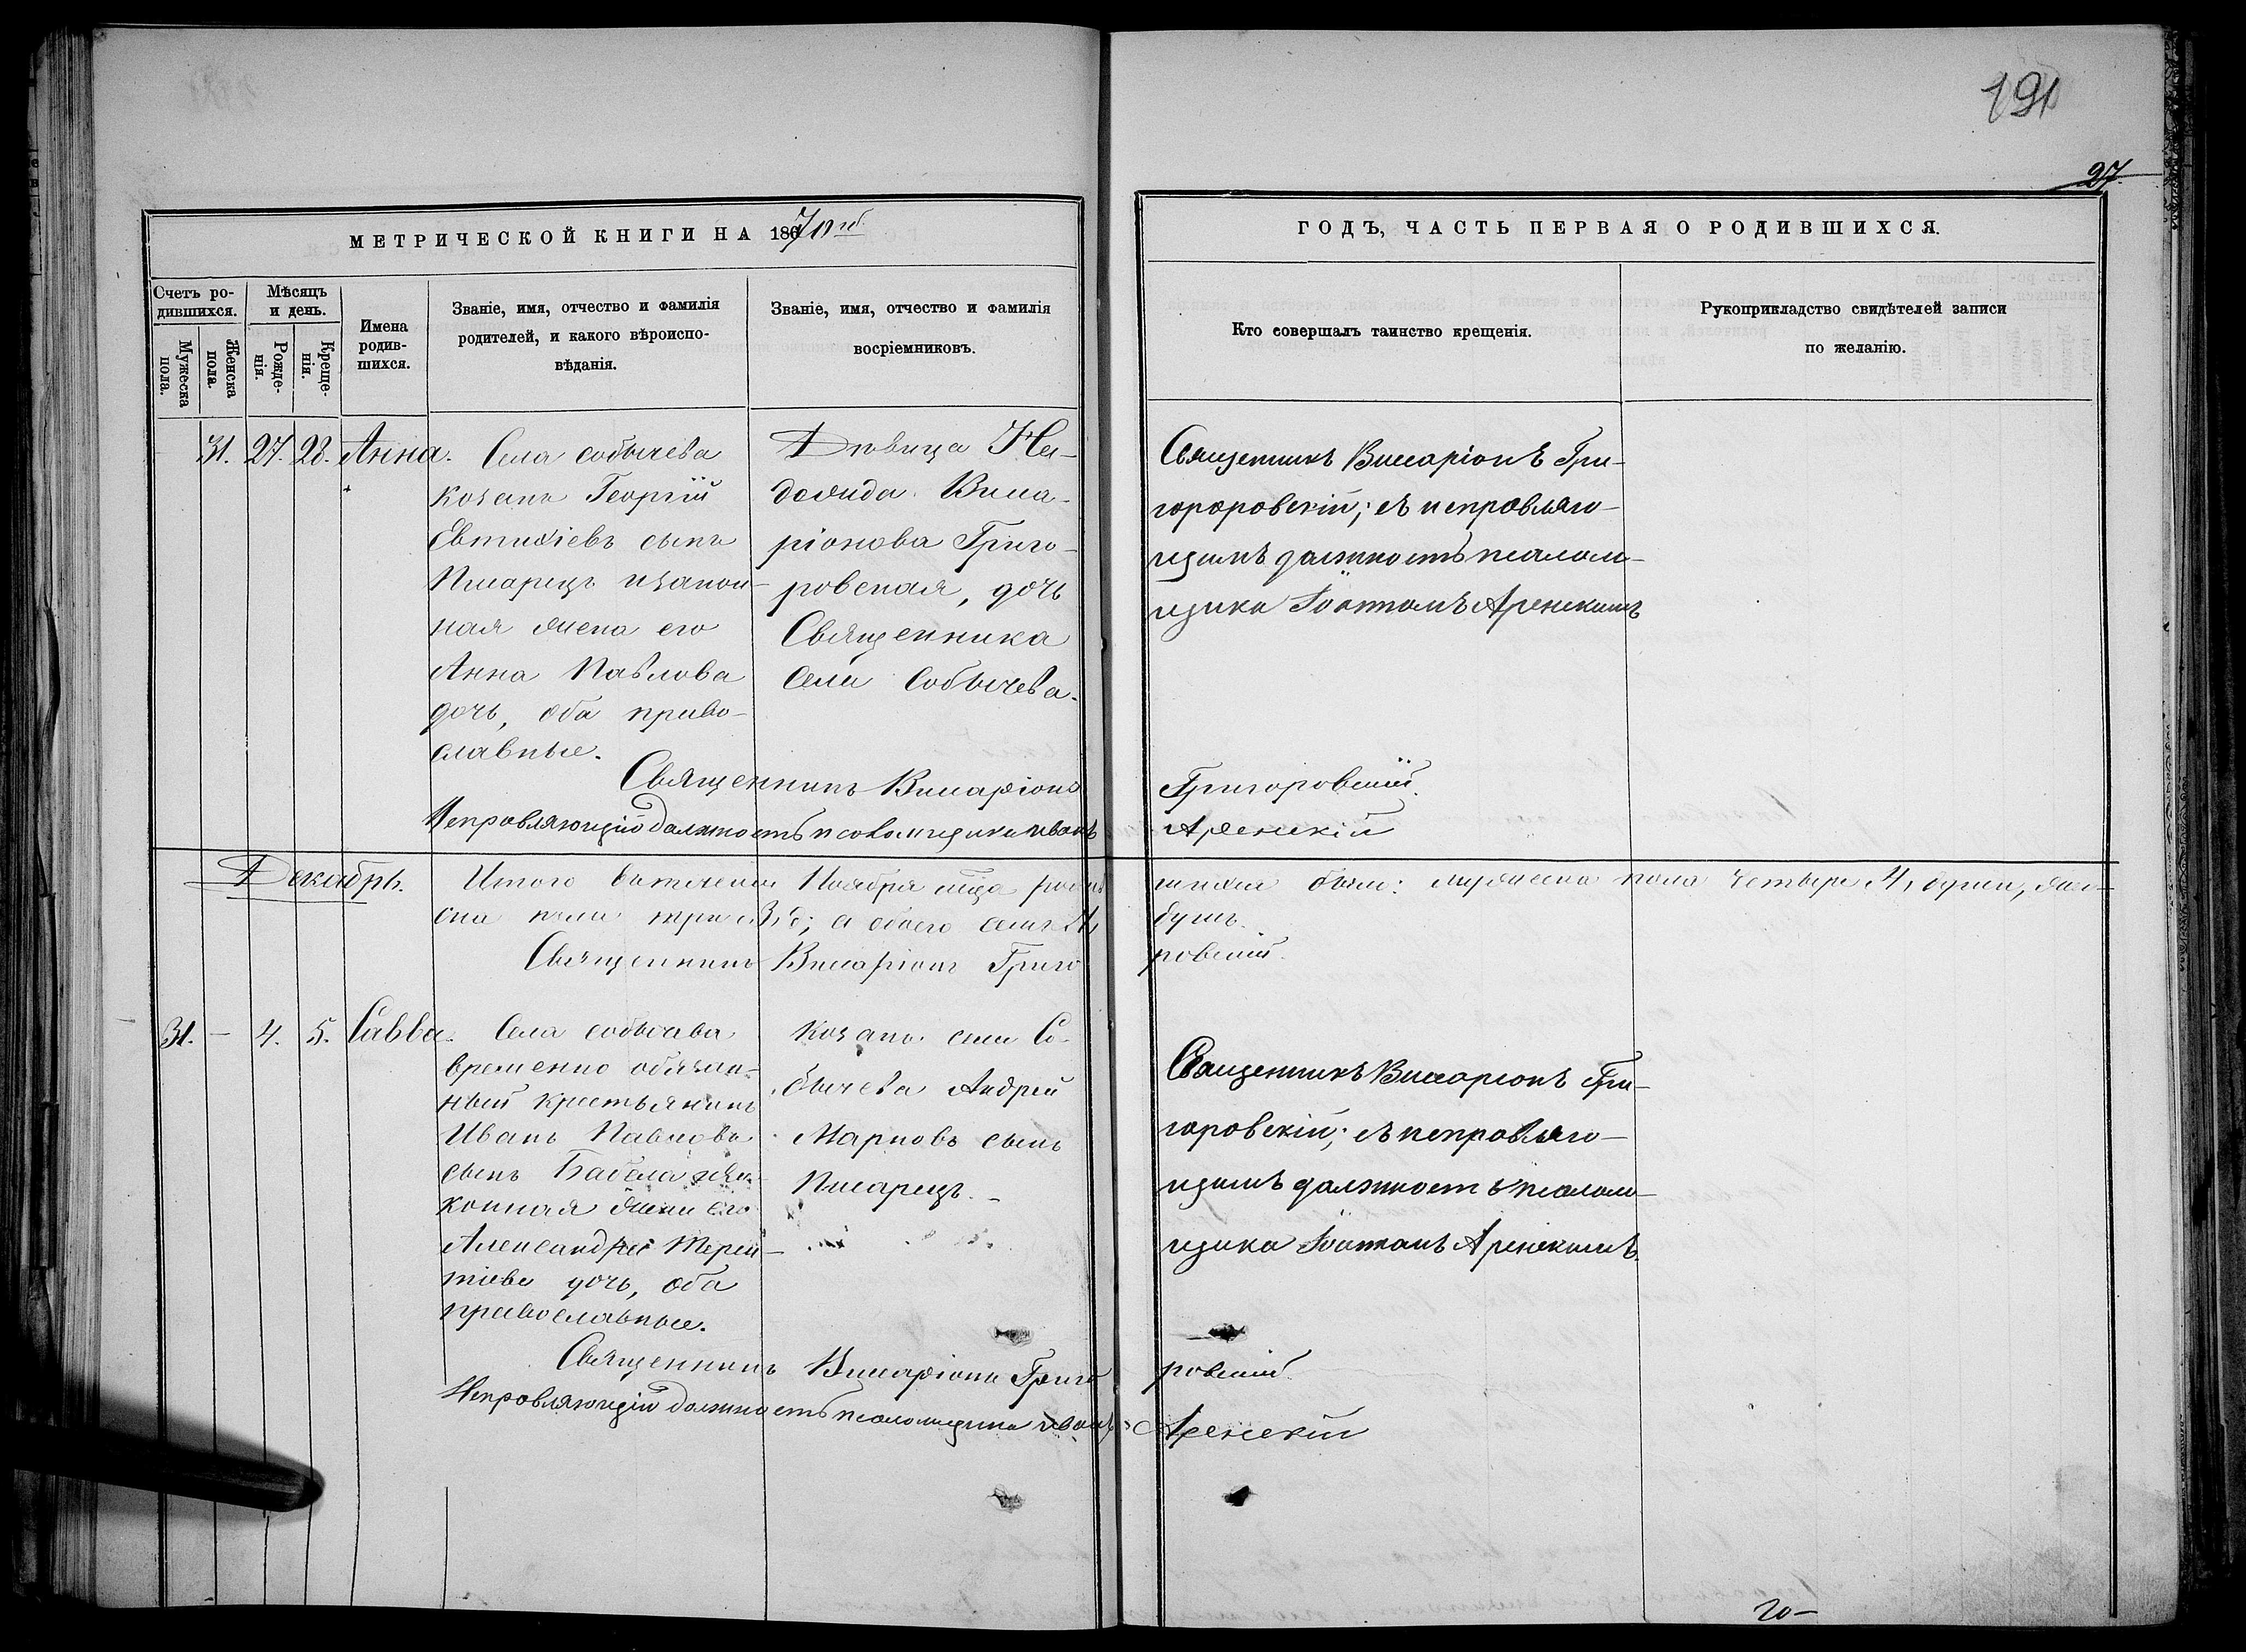 191
27.
МЕТРИЧЕСКОЙ КНИГИ НА 1870й
ГОДЪ, ЧАСТЬ ПЕРВАЯ О РОДИВШИХСЯ.
Счетъ ро-
дившихся.
Мужеска
пола.
Женска
пола.
Мѣсяцъ
и день.
Рожде-
нія.
Креще-
нія.
Имена
родив-
шихся.
Званіе, имя, отчество и фамилія
родителей, и какого вѣроиспо-
вѣданія.
Званіе, имя, отчество и фамилія
восріемниковъ.
Кто совершалъ таинство крещенія.
Рукоприкладство свидѣтелей записи
по желанію.
31. 27. 28. Анна.
Села Собычева
козакъ Георгій
Евтихіевъ сынъ
Писарецъ и закон-
ная жена его
Анна Павлова
дочь, оба право-
славные.
Дѣвица
Висса-
ріонова Григо-
ровская, дочь
Священника
села Собычева.
Священникъ Виссаріонъ Гри-
горовскій; съ исправляю-
щимъ должность псалом-
щика Іоанномъ Аренскимъ
Священникъ Виссаріонъ Григоровскій.
Исправляющій должность псаломщика Иванъ Аренскій
Декабрь.
Итого въ теченіи Ноября м-ца родив шихся было: мужеска пола четыре 4, души, жен-
ска пола три 3, д; а обоего семь душъ.
Священникъ Виссаріонъ Григо ровскій.
31. - 4. 5. Савва.
Села Собычева
временно обязан-
ный крестьянинъ
Иванъ Павловъ
сынъ и за-
конная жена его
Александра Терен-
тіева дочь, оба
православные.
Козакъ села Со-
бычева Андрей
Марковъ сынъ
Писарецъ. -
Священникъ Виссаріонъ Гри-
горовскій; съ исправляю-
щимъ должность псалом-
щика Іоанномъ Аренскимъ.
Священникъ Виссаріонъ Григо ровскій
Исправляющій должность псаломщика Иванъ Аренскій